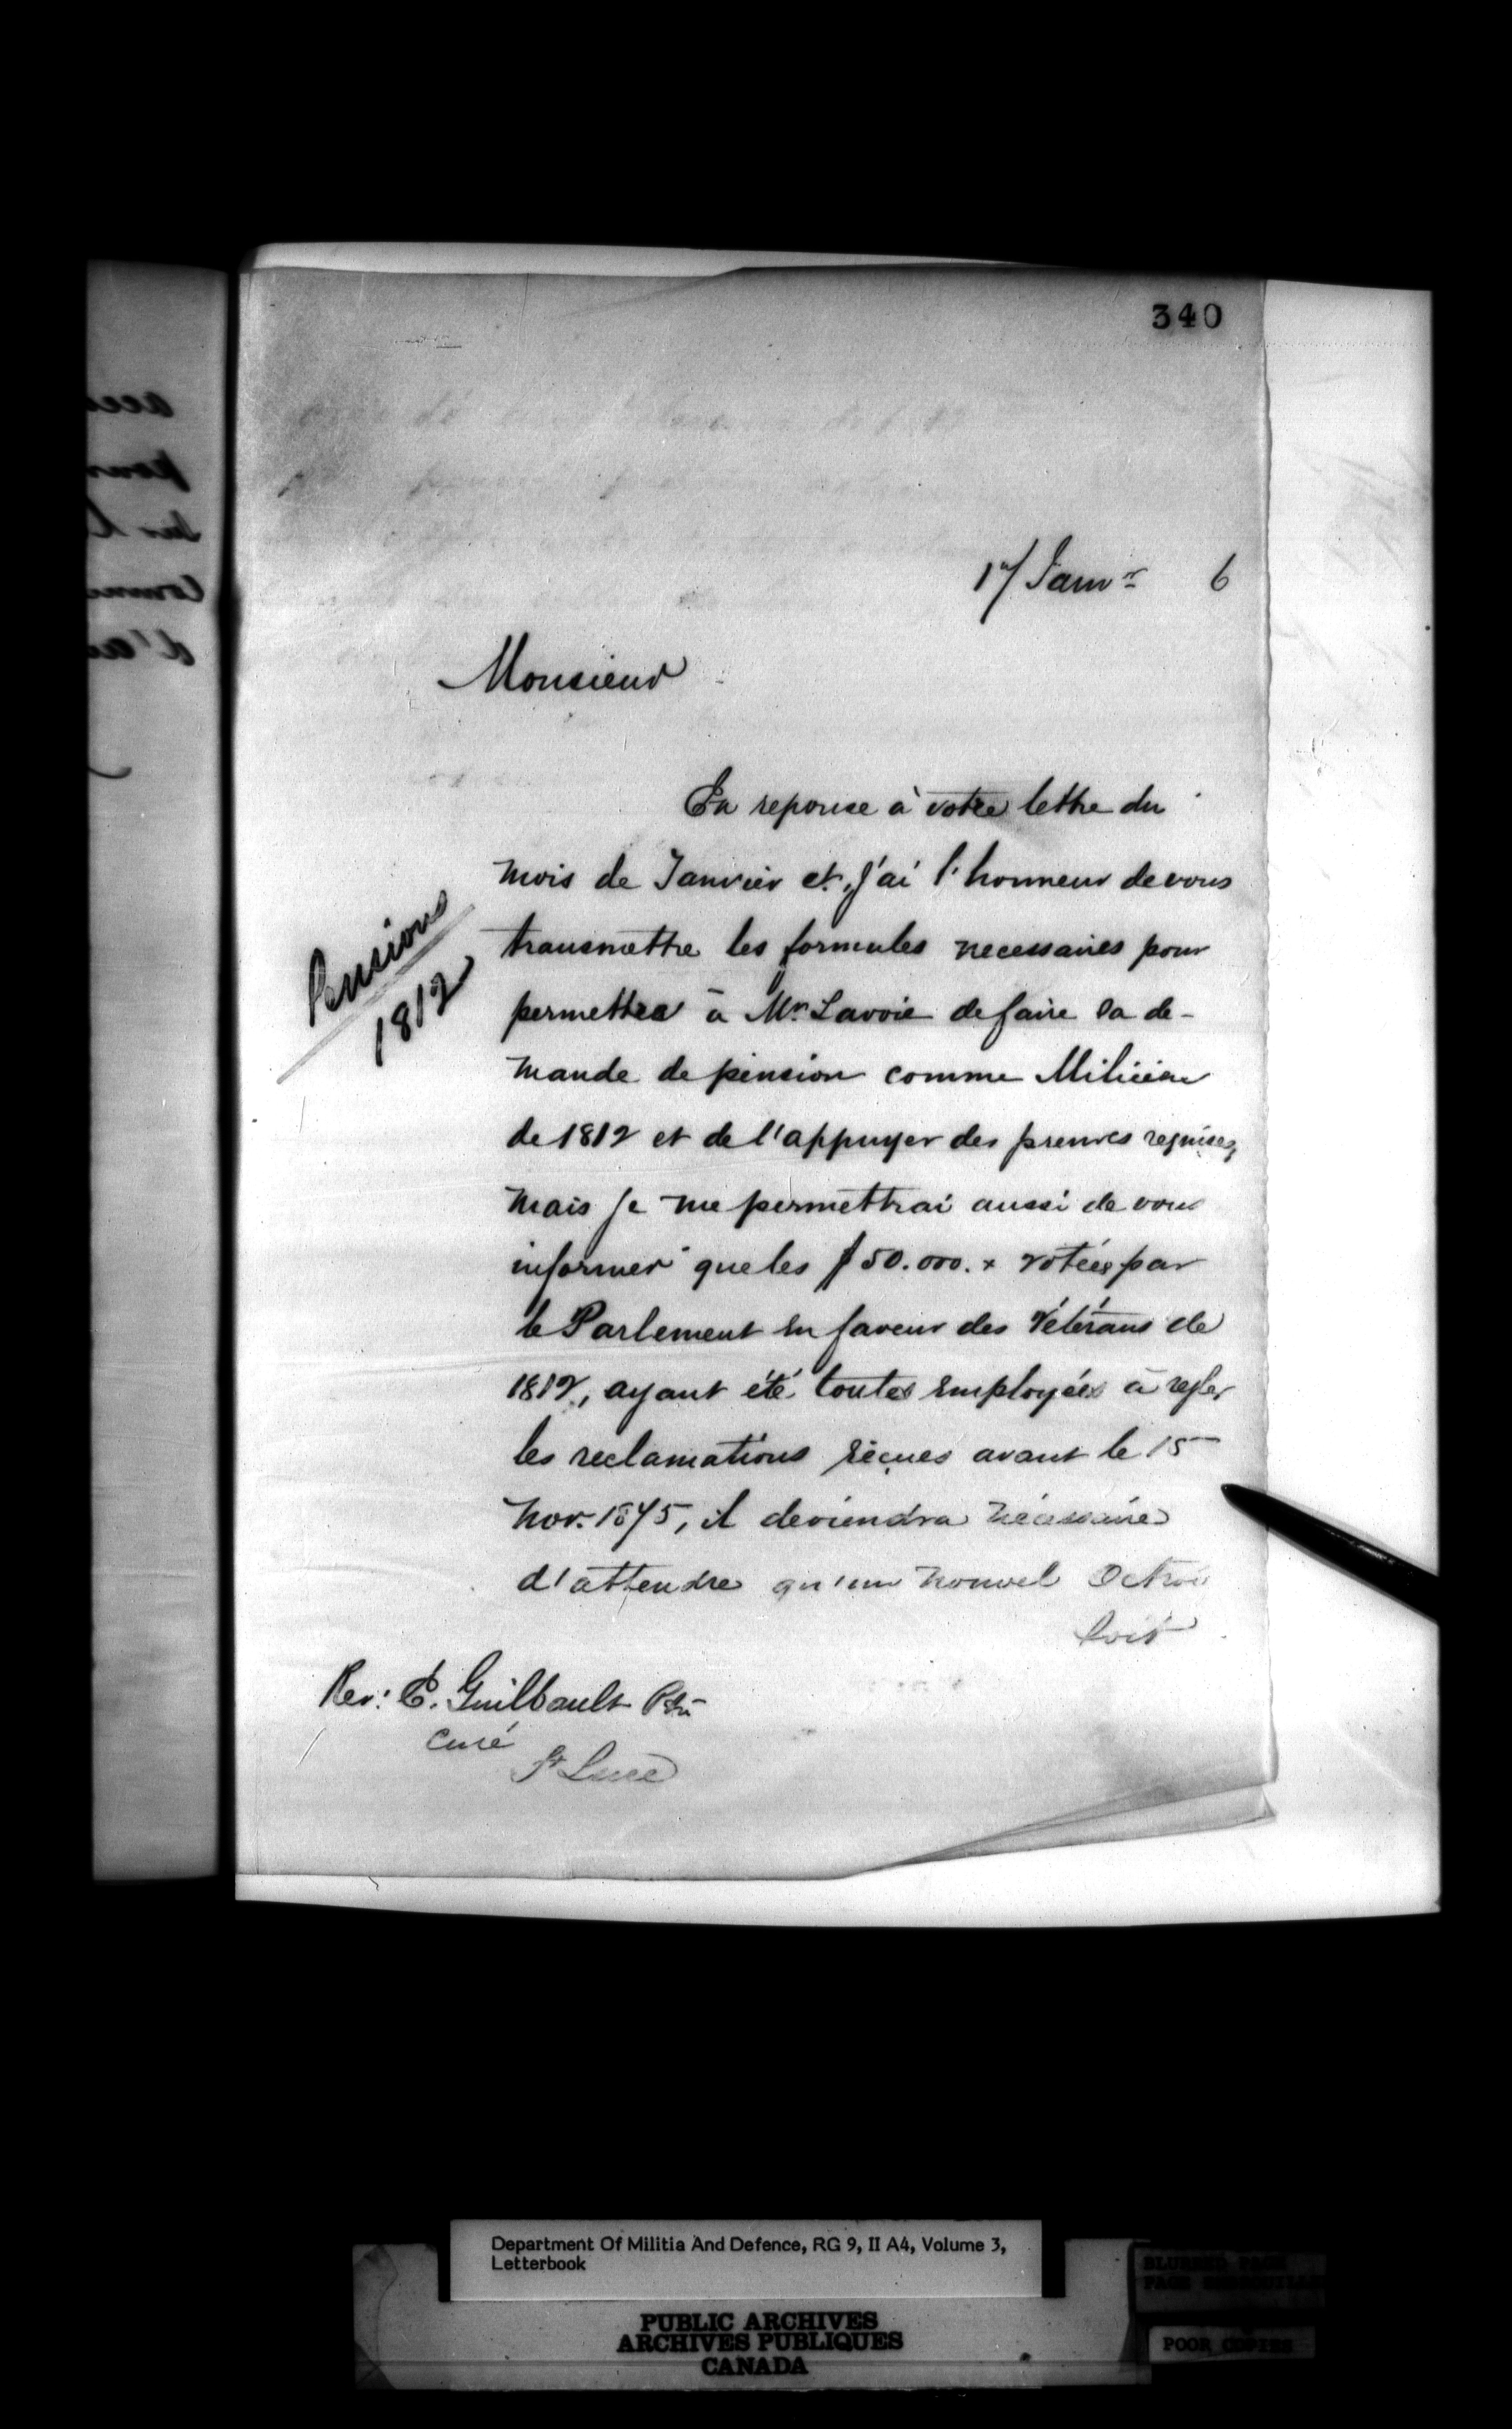 340
17 Janvr 6
Monsieur
En reponse à votre lettre du
mois de Janvier ct, j'ai l'honneur de vous
transmettre les formules necessaires pour
permettre à Mr. Lavoie de faire sa de-
mande de pension comme Milicien
de 1812 et de l'appuyer des preuves requises,
mais je me permettrai aussi de vous
informer que les $50.000. x votées par
le Parlement en faveur des Vétérans de
1812, ayant été toutes employées à regler
les reclamations reçues avant le 15
Nov. 1875, il deviendra nécessaire
d'attendre qu'un nouvel Octroi
soit
Pensions
1812
Rev: E. Guilbault Ptre
Curé
St Luce
Department Of Militia And Defence, RG 9, II A4, Volume 3,
Letterbook
PUBLIC ARCHIVES
ARCHIVES PUBLIQUES
CANADA
POOR COPIES